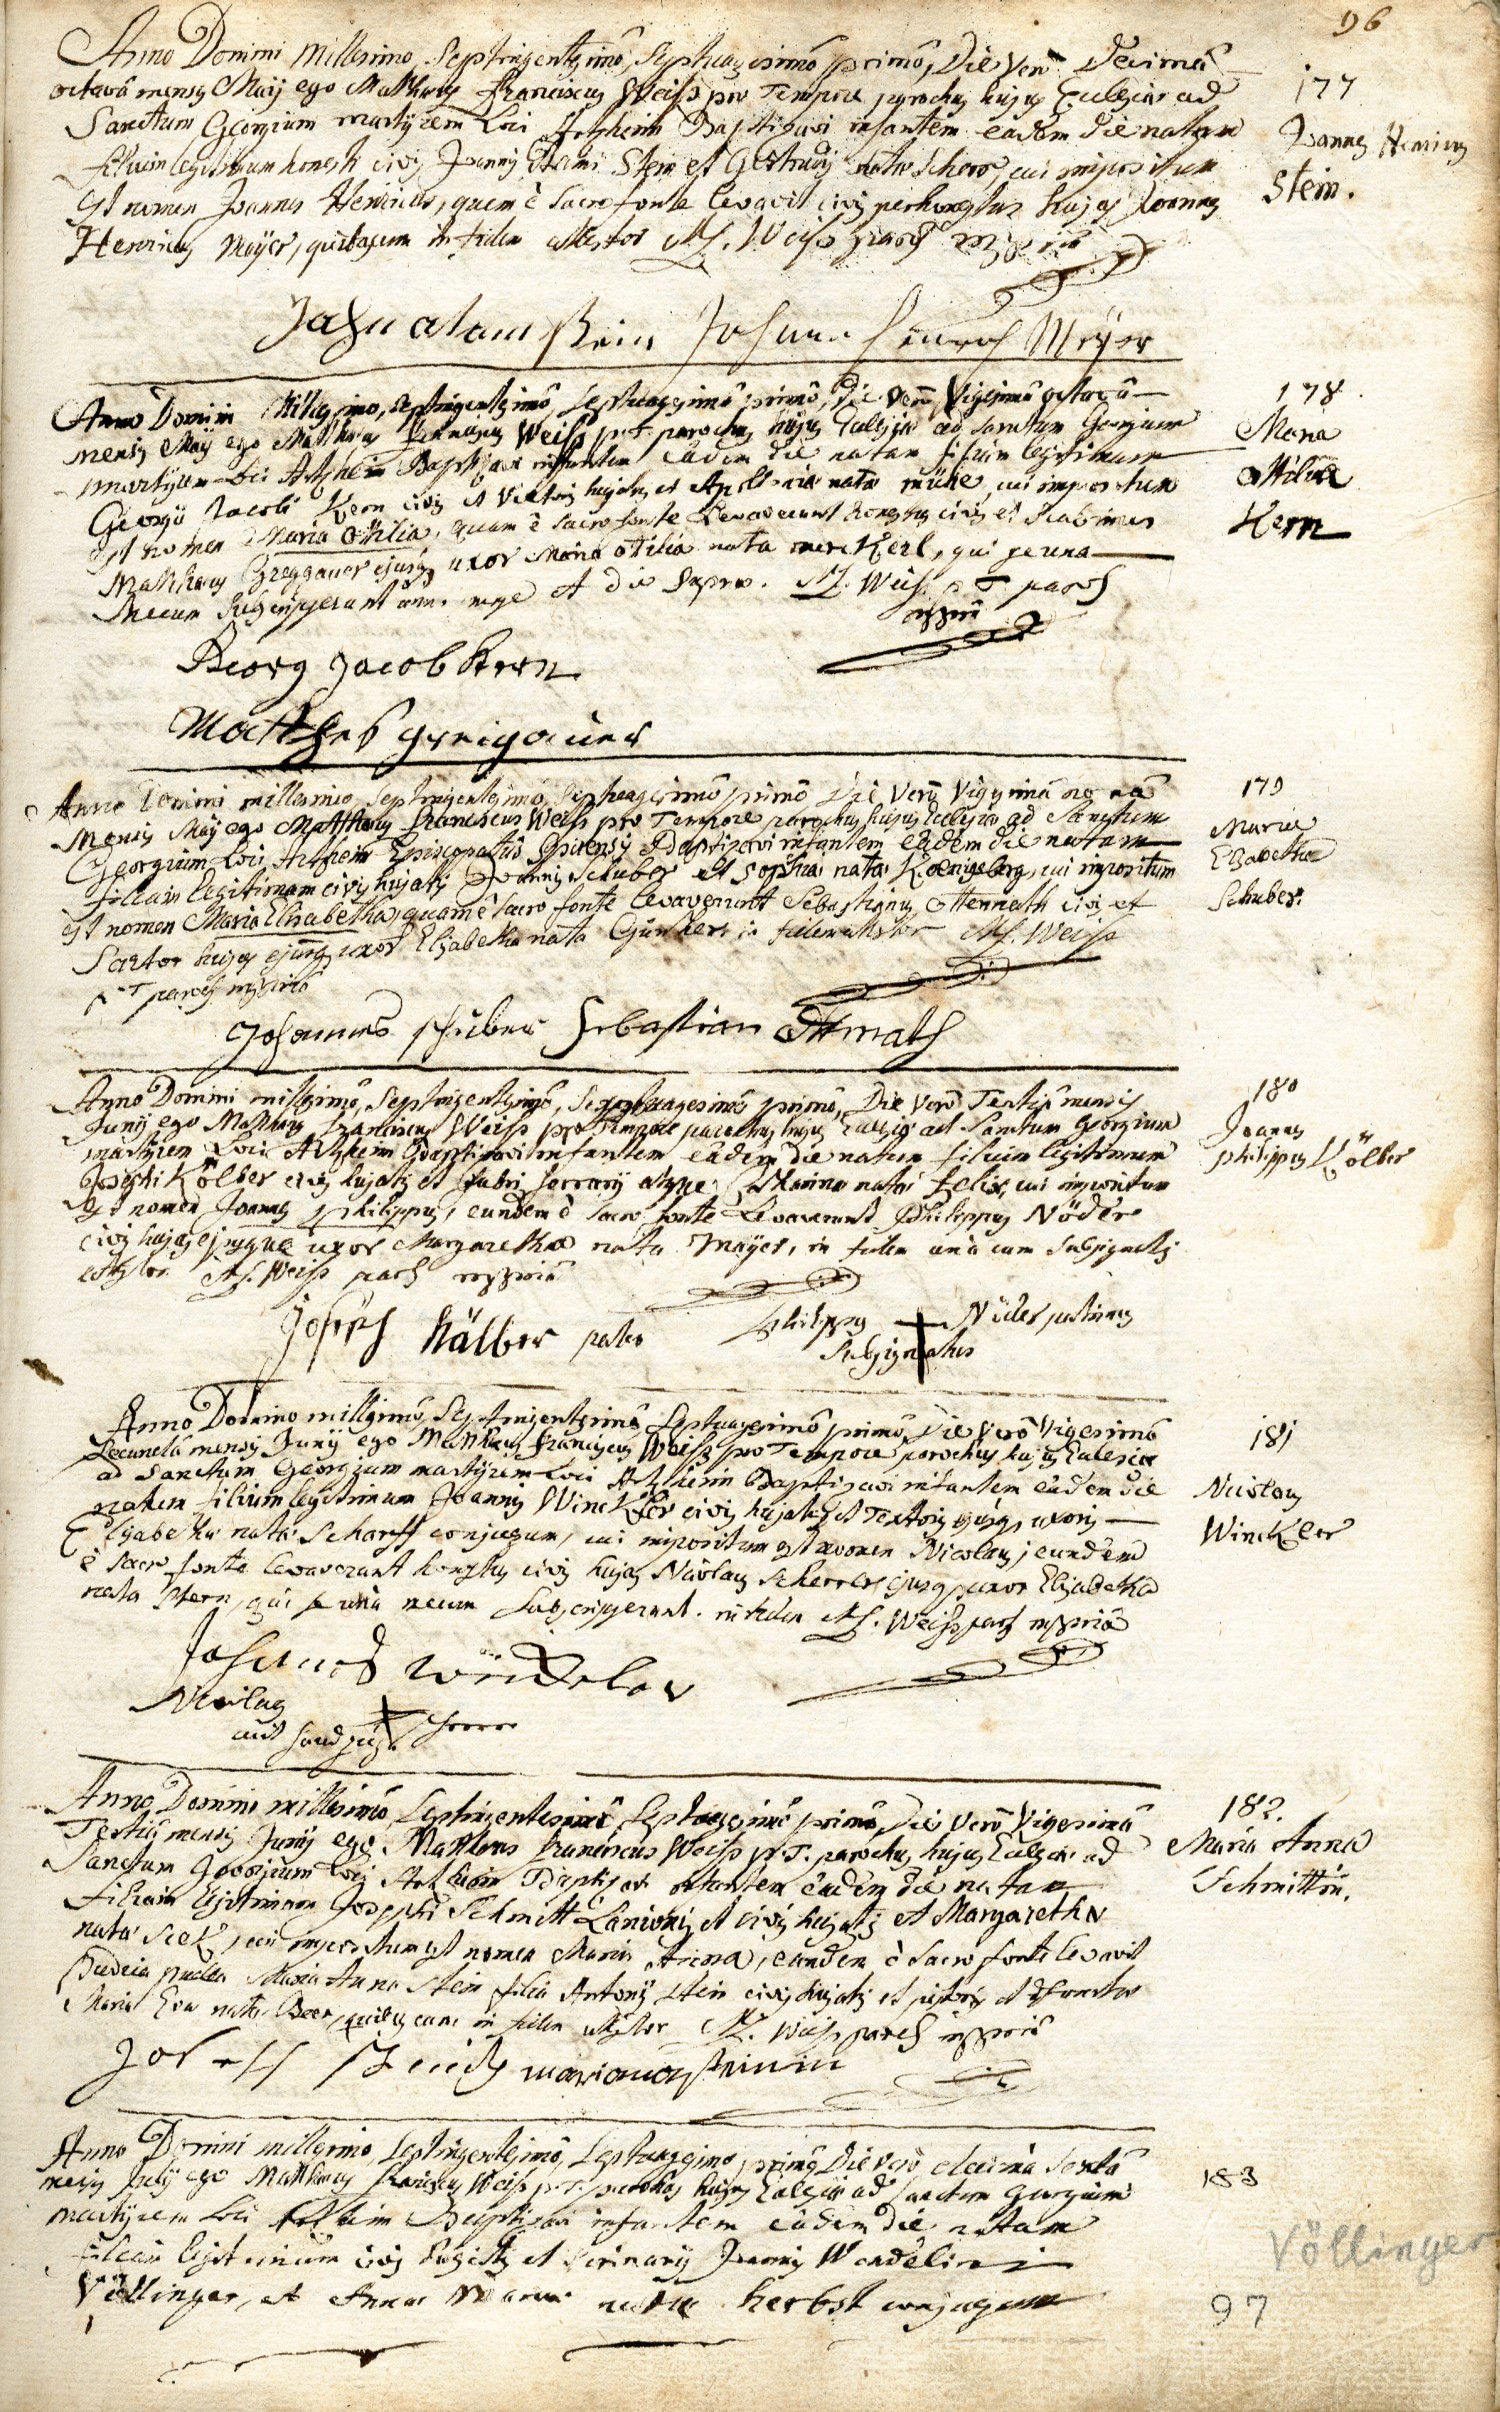 96
Anno Domini Millesimo, Septringentesimô, Septuagesimô primô, Die Verò Decimâ
octavâ mensis Maij ego Matthaeus Franciscus Weiss pro Tempore parochus hujus Ecclesiae ad
Sanctum Georgium martÿrem Loci Artzheim Baptizavi infantem eâdem die natum
filium legitimum honesti civis Joannis Adami Stein et Gertrudis nata Schoor, cui impositum
Est nomen Joannes Henricus, quem è Sacro fonte levavit civis perhonestus hujas Joannes
Henricus Maÿer, quibuscum in fidem attestor M. F. Weiss paroch mppriâ
177
Joannes Henricus
Stein.
Johann adam stein Johann Henrich Meÿer
Anno Domini Millesimo, Septringentesimô, Septuagesimô primô, Die verò Vigesimâ octavâ
mensis Maij ego Matthaeus Franciscus Weiss p. T. parochus hujus Ecclesiae ad Sanctum Georgium
martÿrem Loci Artzheim Baptizavi infantem eâdem die natam filiam legitimam
Georgii Jacobi Kern civis et hujatis et Apolloniae nata, cui impositum
Est nomen Maria Ottilia, quam è Sacro fonte Levaverunt honestus civis et Scabinus
Matthaeus Greggauer ejusq uxor Maria Otilia nata Kerl, qui se una
Mecum Subscripserunt anno mense et die Supra. M. F. Weiss p T paroch
mppriâ
178
Maria
Ottilia
Kern
Georg Jacob Kern
Matthes greigauer
Anno Domini millesimo, Septringentesimô, Septuagesimô primô Die Verò Vigesimâ nonâ
Mensis Maij ego Matthaeus Franciscus Weiss pro Tempore parochus hujus Ecclesiae ad Sanctum
Georgium Loci Artzheim Episcopatûs Spirensis Baptizavi infantem eâdem die natam
filiam legitimam civis hujatis Joannis Schuber et Sophia nata Koenigsberg, cui impositum
est nomen Maria Elisabetha, quam è Sacro fonte levaverunt Sebastianus Ottennath civis et
Sartor hujas ejusq uxor Elisabetha nata Günther in fidem attestor M. F. Weiss
p T paroch mppriâ
179
Maria
Elisabetha
Schuber.
Johannes schuber Sebastian Ottnath
Anno Domini millesimô, Septringentesimô, Septuagesimô primô, Die Verò Tertiâ mensis
Junij ego Matthaeus Franciscus Weiss pro Tempore parochus hujus Ecclesiae ad Sanctum Georgium
martÿrem Loci Artzheim Baptizavi infantem eâdem die natum filium legitimum
Josephi Kölber civis hujatis et fabri ferrarij atque Catharina nata Felix, cui impositum
Est nomen Joannes Philippus, eundem è Sacro fonte Levaverunt Philippus Nöder
civis hujas ejusque uxor Margaretha nata Maÿer, in fidem unà cum Subsignatis
attestor M. F. Weiss paroch mppriâ
180
Joannes
Philippus Kölber
Joseph Kälber pater Philippus + Nöder patrinus
Subsignatus
Anno Domino millesimô, Septringentesimô, Septuagesimô primô, Die Verò Vigesimâ
Secundâ mensis Junij ego Matthaeus Franciscus Weiss pro Tempore parochus hujus Ecclesiae
ad Sanctum Georgium martÿrem Loci Artzheim Baptizavi infantem eâdem die
natum filium legitimum Joannis Winckler civis hujatis et Textoris ejusq uxoris
Elisabetha nata Scharff conjugum, cui impositum est nomen Nicolaus, eundem
è Sacro fonte levaverunt honestus civis hujas Nicolaus Scherrer, ejusq uxor Elisabetha
nata Stern, qui se unà mecum Subscripserunt. in fidem M. F. Weiss paroch mppriâ
181
Nicolaus
Winckler
Johannes winckeler
Nicolaus
Anno Domini millesimô, Septringentesimô, Septuagesimô primô, Die Verò Vigesimâ
Tertiâ mensis Junij ego Matthaeus Franciscus Weiss p. T. parochus hujus Ecclesiae ad
Sanctum Georgium Loci Artzheim Baptizavi infantem eâdem die natam
filiam legitimam Josephi Schmitt Lanionis et civis hujatis et Margaretha
nata Seck, cui impositum est nomen Maria Anna, eandem è Sacro fonte levavit
Pudica puella Maria Anna Stein filia Antonij Stein civis hujatis et pistoris et defuncta
Maria Eva nata Beer, quibuscum in fidem attestor M. F. Weiss paroch mppriâ
182.
Maria Anna
Schmittin.
Joseph Schmidt mariana steinin
Anno Domini millesimo, Septringentesimô, Septuagesimo primô Die Verò decimâ Sextâ
mensis Julij ego Matthaeus Franciscus Weiss p. T. parochus hujus Ecclesiae ad Sanctum Georgium
martÿrem Loci Artzheim Baptizavi infantem eâdem die natam
filiam legitimam civis hujatis et Joannis Wendelini
Völlinger, et Anna Maria nata herbst conjugum
183
Völlinger
97